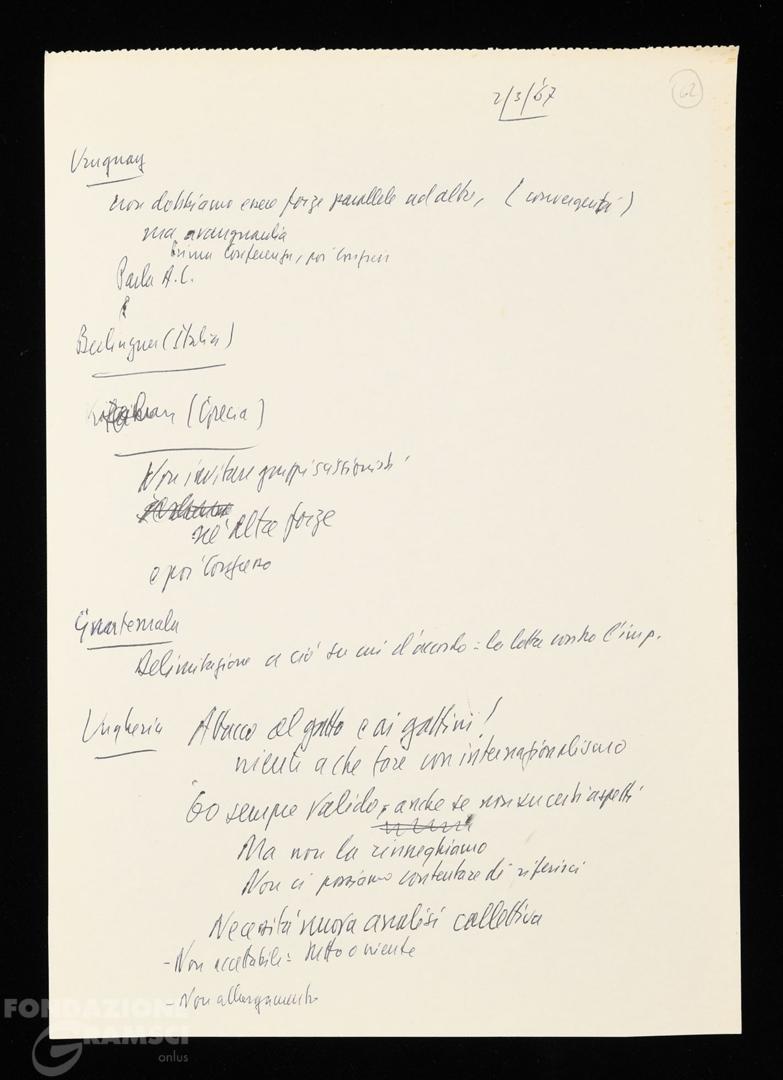 2/3/67
62
Uruguay
non dobbiamo essere forze parallele ad altre, (convergenti)
ma avanguardia
prima conferenza, poi Congresso
Parla A.C.
Berlinguer (Italia)
(Grecia)
Non invitare gruppi scissionisti
né altre forze
e poi Congresso
Guatemala
Delimitazione a ciò su cui d'accordo = la lotta contro l'imp.
Ungheria Attacco al gatto e ai gattini!
niente a che fare con internazionalismo
60 sempre valido, anche se non su certi aspetti
Ma non la rinneghiamo
Non ci possiamo contentare di riferirci
Necessità nuova analisi collettiva
- Non accettabile = tutto o niente
- Non allargamento
FONDAZIONE
GRAMSCI
onlus